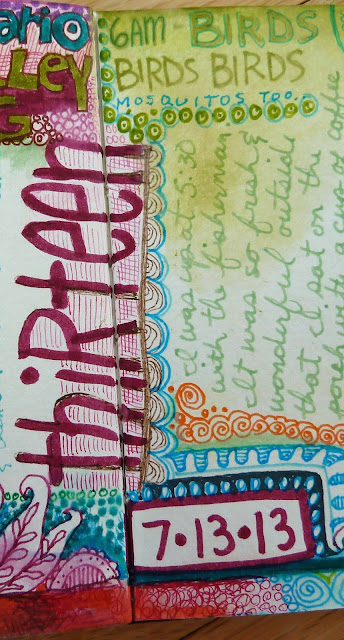 ario
lley
G
thiRTeen
6AM - BIRDS
BIRDS BIRDS
MOSQUITOS TOO..
I was up at 5:30
with the fisherman.
It was so fresh &
wonderful outside
that I sat on the
with a cup of coffee
7•13•13